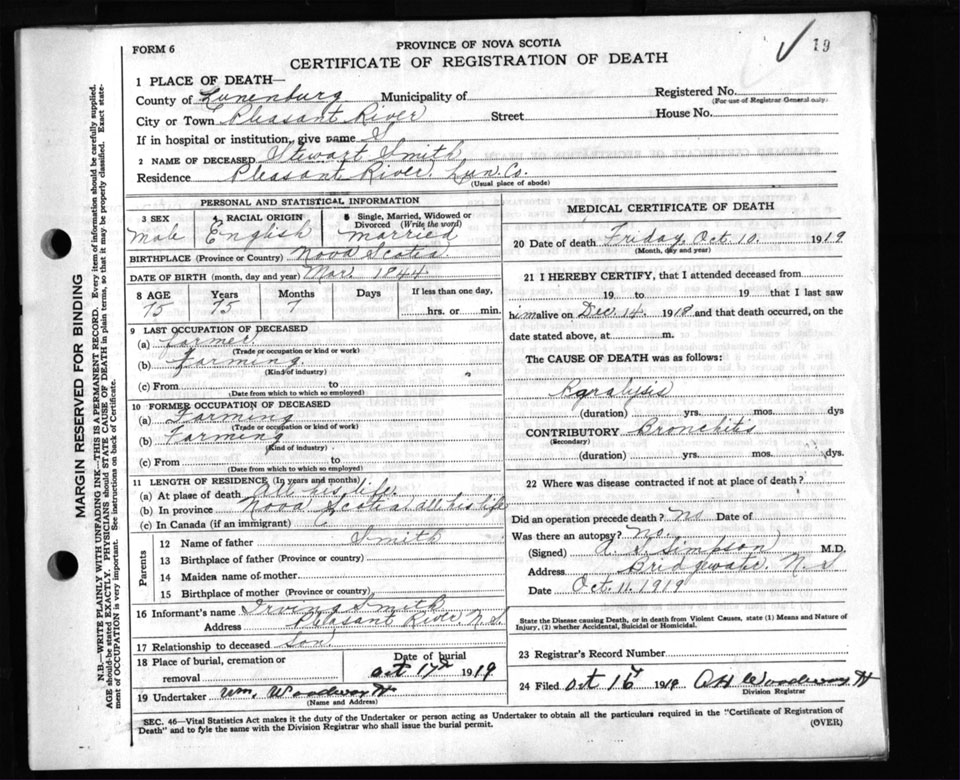 FORM 6
PROVINCE OF NOVA SCOTIA
19
CERTIFICATE OF REGISTRATION OF DEATH
1 PLACE OF DEATH—
County of Lunenburg Municipality of Registered No.
(For use of Registrar General only)
City or Town Pleasant River Street House No.
If in hospital or institution, give name
2 NAME OF DECEASED Stewart Smith
Residence Pleasant River Lun. Co.
(Usual place of abode)
PERSONAL AND STATISTICAL INFORMATION
3 SEX 4 RACIAL ORIGIN 5 Single, Married, Widowed or Divorced (Write the word)
Male English Married
BIRTHPLACE (Province or Country) Nova Scotia
DATE OF BIRTH (month, day and year) Mar. 1844
8 AGE Years Months Days If less than one day,
75 75 7 hrs. or min.
9 LAST OCCUPATION OF DECEASED
(a) Farmer
(Trade or occupation or kind or work)
(b) Farming
(Kind of industry)
(c) From to
(Date from which to which so employed)
10 FORMER OCCUPATION OF DECEASED
(a) Farming
(Trade or occupation or kind of work)
(b) Farming
(Kind of industry)
(c) From to
(Date from which to which so employed)
11 LENGTH OF RESIDENCE (In years and months)
(a) At place of death All his life
(b) In province Nova Scotia all his life
(c) In Canada (if an immigrant)
Parents
12 Name of father Smith
13 Birthplace of father (Province or country)
14 Maiden name of mother
15 Birthplace of mother (Province or country)
16 Informant's name Irving Smith
Address Pleasant River N.S.
17 Relationship to deceased Son
18 Place of burial, cremation or removal
Date of burial
Oct 17th 1919
19 Undertaker Wm. Woodworth
(Name and Address)
MEDICAL CERTIFICATE OF DEATH
20 Date of death Friday Oct. 10. 1919
(Month, day and year)
21 I HEREBY CERTIFY, that I attended deceased from
19 to 19 that I last saw
him alive on Dec. 14. 1918 and that death occurred, on the
date stated above, at m.
The CAUSE OF DEATH was as follows:
Paralysis
(duration) yrs. mos. dys
CONTRIBUTORY Bronchitis
(Secondary)
(duration) yrs. mos. dys.
22 Where was disease contracted if not at place of death?
Did an operation precede death? No Date of
Was there an autopsy? No.
(Signed) Simpson M.D.
Address Bridgewater N.S
Date Oct. 11. 1919
State the Disease causing Death, or in death from Violent Causes, state (1) Means and Nature of
Injury, (2) whether Accidental, Suicidal or Homicidal.
23 Registrar's Record Number
24 Filed Oct 16 1919 Woodworth
Division Registrar
SEC. 46—Vital Statistics Act makes it the duty of the Undertaker or person acting as Undertaker to obtain all the particulars required in the "Certificate of Registration of
Death" and to fyle the same with the Division Registrar who shall issue the burial permit.
(OVER)
MARGIN RESERVED FOR BINDING
N.B.—WRITE PLAINLY WITH UNFADING INK—THIS IS A PERMANENT RECORD. Every item of information should be carefully supplied.
AGE should be stated EXACTLY. PHYSICIANS should STATE CAUSE OF DEATH in plain terms, so that it may be properly classified. Exact state-
ment of OCCUPATION is very important. See instructions on back of Certificate.